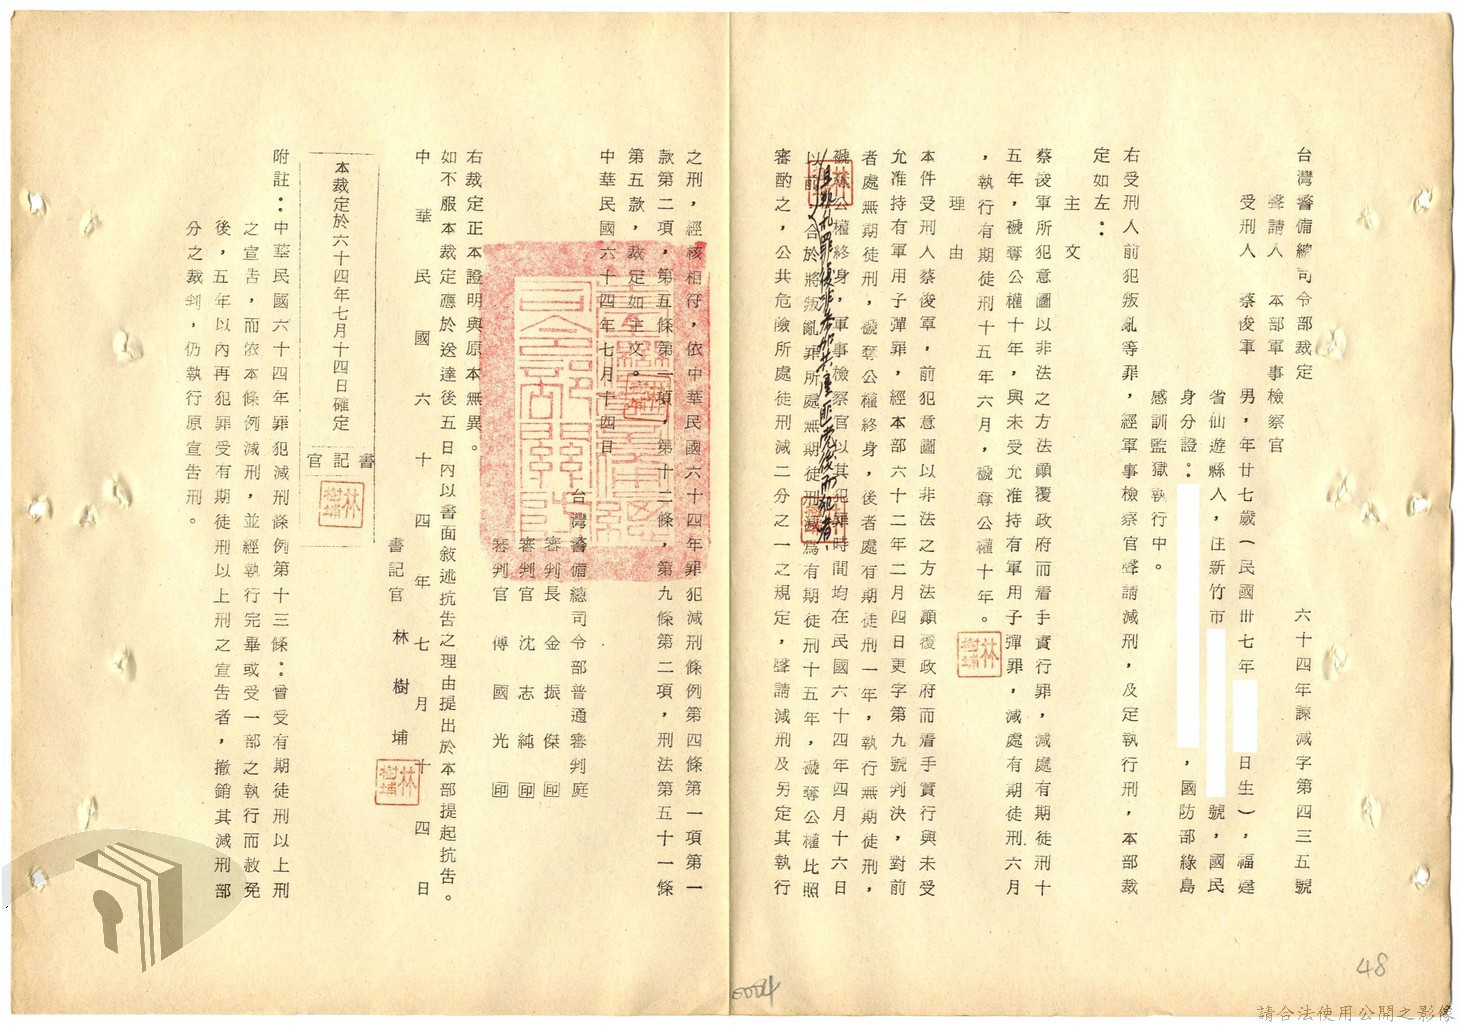 台灣警備總司令部裁定　六十四年諫減字第四三五號
聲請人　本部軍事檢察官
受刑人　蔡俊軍　男，年廿七歲（民國卅七年　日生），福建
省仙遊縣人，住新竹市　號，國民
身分證：　，國防部綠島
感訓監獄執行中。
右受刑人前犯叛亂等罪，經軍事檢察官聲請減刑，及定執行刑，本部裁
定如左：
主文
蔡俊軍所犯意圖以非法之方法顛覆政府而着手實行罪，減處有期徒刑十
五年，褫奪公權十年，與未受允准持有軍用子彈罪，減處有期徒刑六月
，執行有期徒刑十五年六月，褫奪公權十年。
理由
本件受刑人蔡俊軍，前犯意圖以非法之方法顛覆政府而着手實行與未受
允准持有軍用子彈罪，經本部六十二年二月四日更字第九號判決，對前
者處無期徒刑，褫奪公權終身，後者處有期徒刑一年，執行無期徒刑，
褫奪公權終身，軍事檢察官以其犯罪時間均在民國六十四年四月十六日
以前，合於將叛亂罪所處無期徒刑減為有期徒刑十五年，褫奪公權比照
且叛亂罪復非參加共產匪黨後而犯者，
審酌之，公共危險所處徒刑減二分之一之規定，聲請減刑及另定其執行
之刑，經核相符，依中華民國六十四年罪犯減刑條例第四條第一項第一
款第二項，第五條第一項，第十二條，第九條第二項，刑法第五十一條
第五款，裁定如主文。
中華民國六十四年七月十四日
台灣警備總司令部普通審判庭
審判長　金振傑　印
審判官　沈志純　印
審判官　傅國光　印
右裁定正本證明與原本無異。
如不服本裁定應於送達後五日內以書面敘述抗告之理由提出於本部提起抗告。
中華民國六十四年七月十四日
書記官　林樹埔
林樹埔
本裁定於六十四年七月十四日確定
書記官
林樹埔
附註：中華民國六十四年罪犯減刑條例第十三條：曾受有期徒刑以上刑
之宣告，而依本條例減刑，並經執行完畢或受一部之執行而赦免
後，五年以內再犯罪受有期徒刑以上刑之宣告者，撤銷其減刑部
分之裁判，仍執行原宣告刑。
48
請合法使用公開之影像